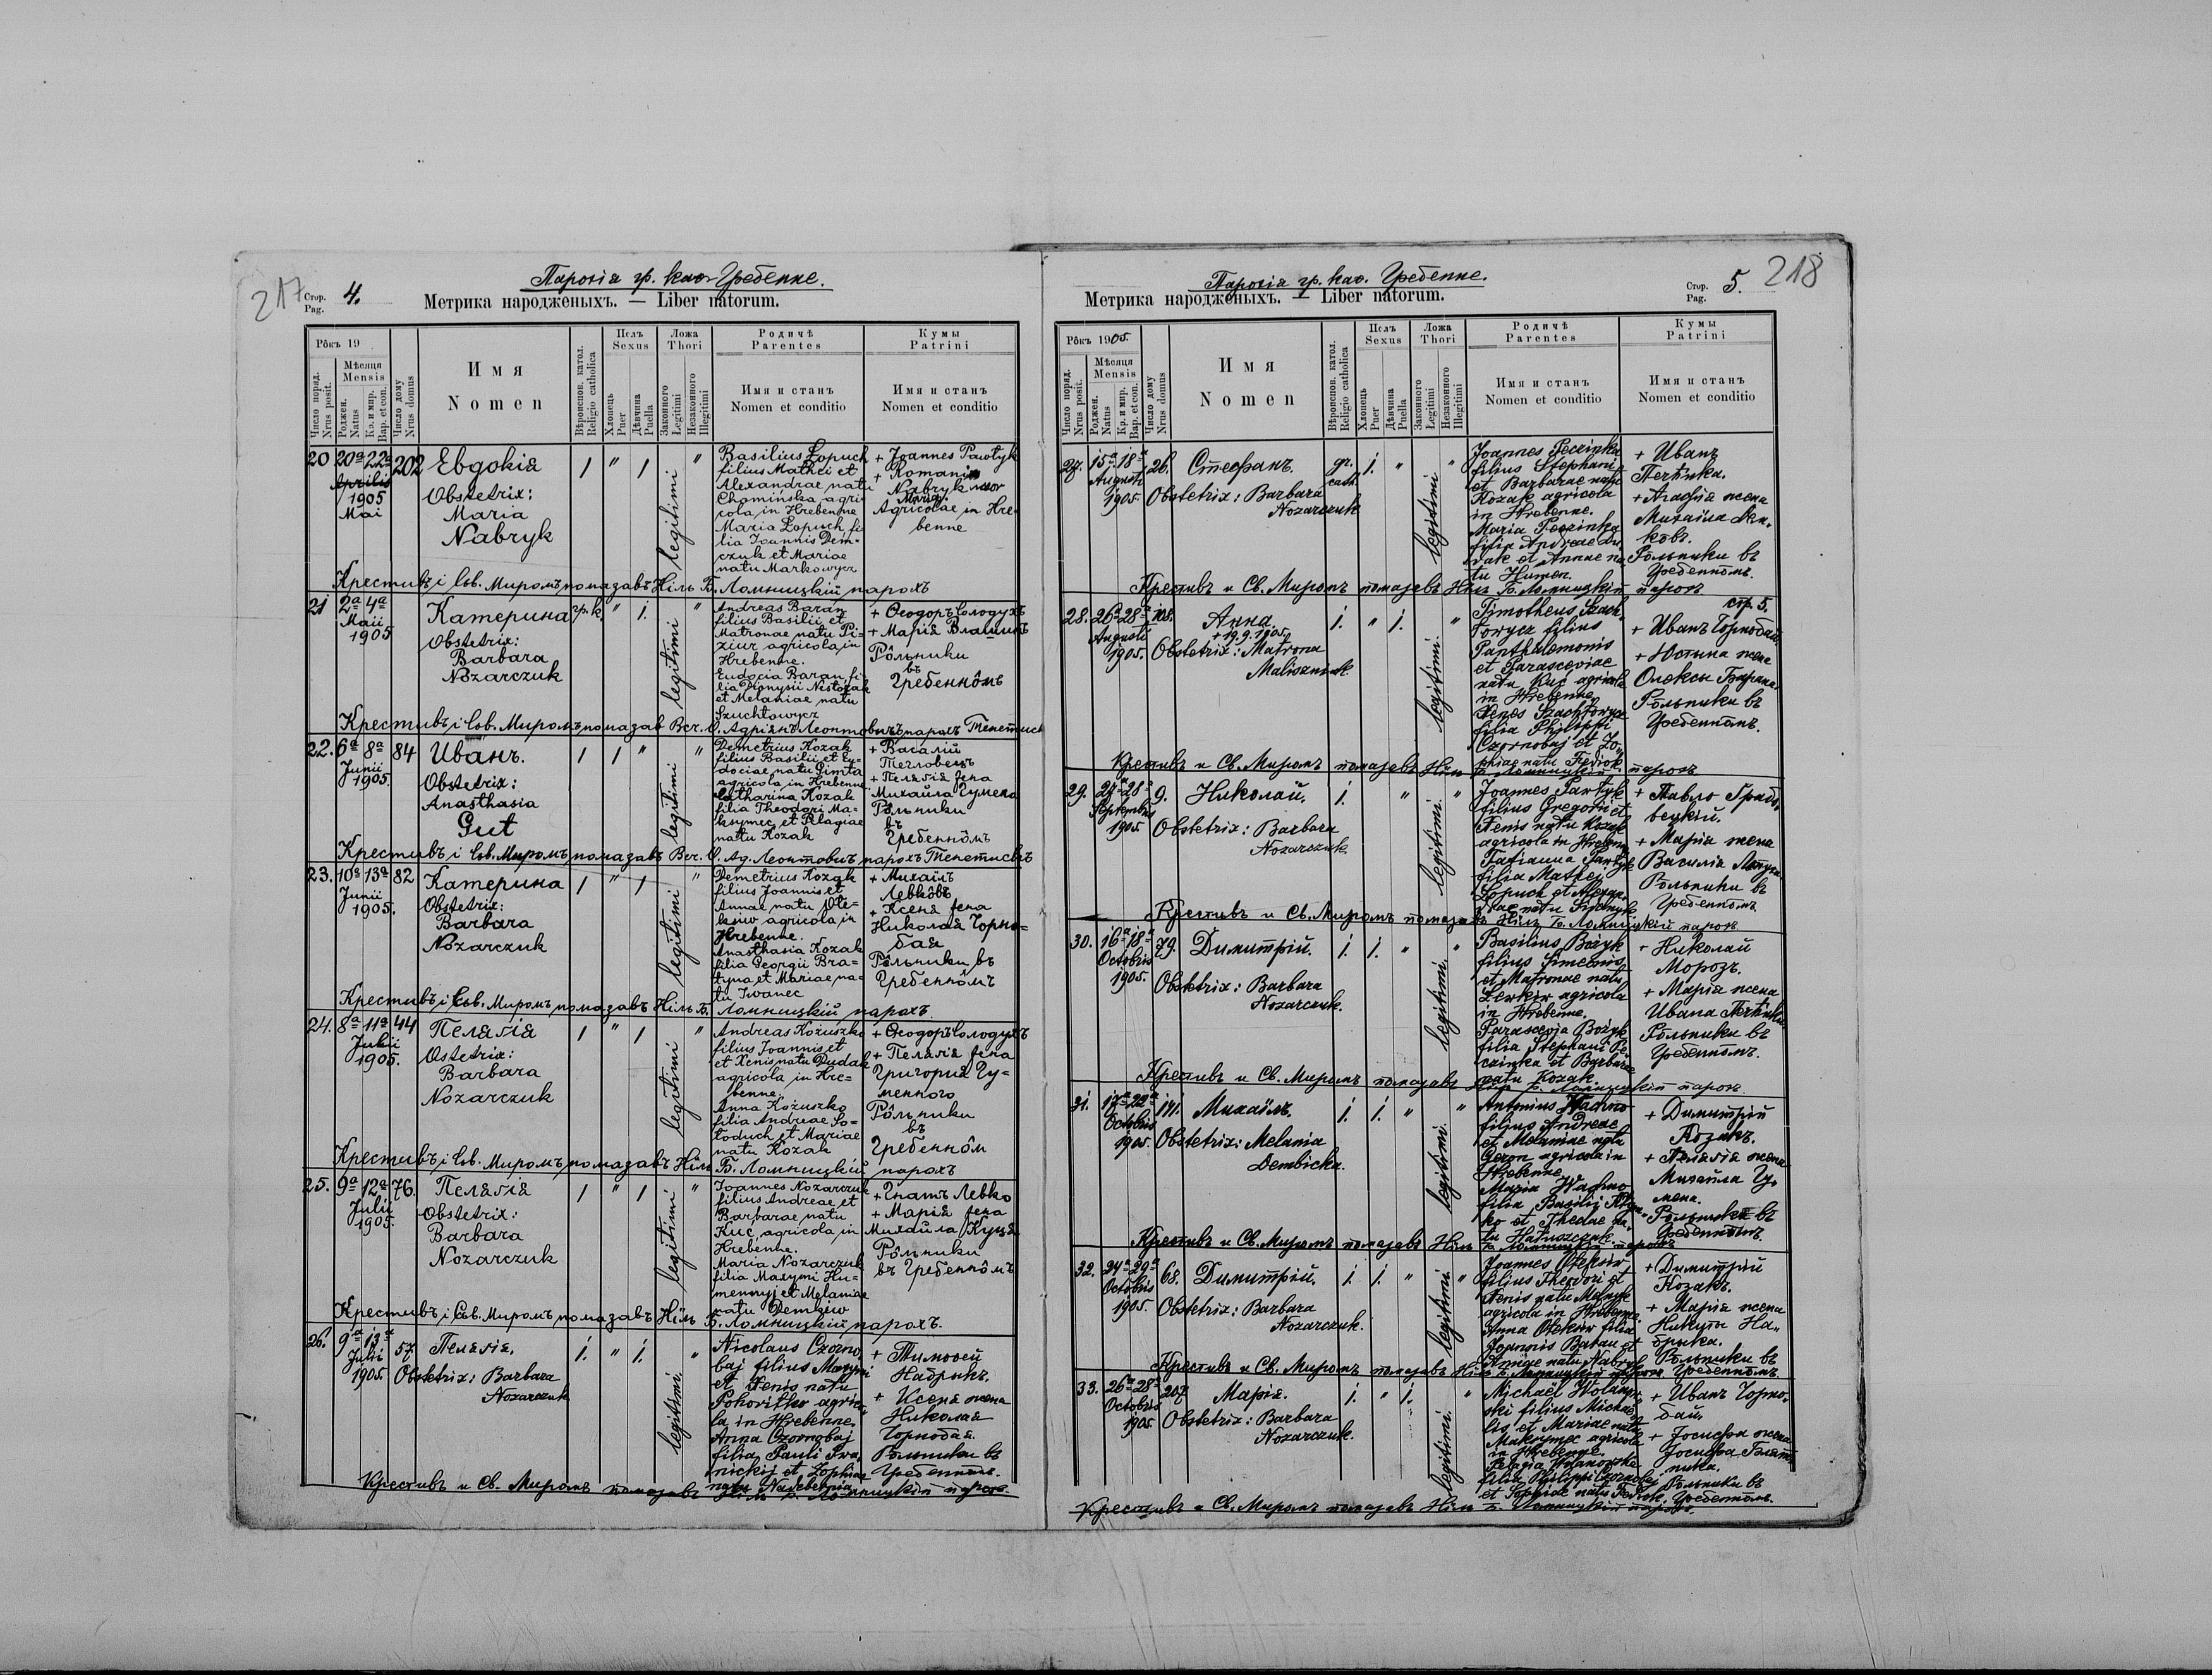 217
Стор. Pag. 4.
Парохія гр. кат. Гребенне.
Метрика народженыхъ. — Liber natorum.
Рôкъ 19
Число поряд. Nrus posit.
Мѣсяця Mensis
Роджен. Natus
Кр. и мир. Bap. et con.
Число дому Nrus domus
Имя Nomen
Вѣроиспов. катол. Religio catholica
Полъ Sexus
Хлопець Puer
Дѣвчина Puella
Ложа Thori
Законного Legitimi
Незаконного Illegitimi
Родичѣ Parentes
Имя и станъ Nomen et conditio
Кумы Patrini
Имя и станъ Nomen et conditio
20 20ª 22ª Aprilis 1905 Mai 202
Евдокія
Obstetrix:
Maria
Nabryk
legitimi
Basilius Łopuch
filius Mathei et
Alexandrae natu
Chomińska agri
cola in Hrebenne
Maria Łopuch fi
lia Joannis Dem-
czuk et Mariae
natu Markowycz
+ Joannes Pawtyk
+ Romani
Nabryk uxor
Maria
Agricolae in Hre-
benne
Крестивъ і Св. Миромъ помазавъ Ніль Б. Ломницкій парохъ
21 2ª 4ª Maii 1905
Катерина гр. к.
Obstetrix:
Barbara
Nozarczuk
legitimi
Andreas Baran
filius Basilii et
Matronae natu Pi-
ziur agricola in
Hrebenne.
Eudocia Baran fi
lia Dionysii Nestorak
et Melaniae natu
Szuchtowycz
+ Ѳеодоръ Солодухъ
+ Марія
Рôльники
въ
Гребеннôмъ
Крестивъ і Св. Миромъ помазав Всч. О. Адріянъ Леонтовичъ парохъ
22. 6ª 8ª Junii 1905 84
Иванъ.
Obstetrix:
Anasthasia
Gut
legitimi
Demetrius Kozak
filius Basilii et Ev-
dociae natu Gimta
agricola in Hrebenne
Catharina Kozak
filia Theodori Ma-
ksymec et Pelagiae
natu Kozak
+ Василій
+ Пелагія жена
Михайла Гумена
Рôльники
въ
Гребеннôмъ
Крестивъ і Св. Миромъ помазавъ Всч. О. Ад. Леонтовичъ парохъ
23. 10ª 13ª Junii 1905. 82
Катерина
Obstetrix:
Barbara
Nozarczuk
legitimi
Demetrius Kozak
filius Joannis et
Annae natu Ole-
ksiw agricola in
Hrebenne.
Anasthasia Kozak
filia Georgii Bra-
tyna et Mariae na-
tu Iwanec
+ Михаилъ
Левкôвъ
+ Ксеня жена
Николая Чорно-
бая
Рôльники въ
Гребеннôмъ
Крестивъ і Св. Миромъ помазавъ Ніль Б. Ломницкій парохъ.
24. 8ª 11ª Julii 1905. 44
Пелагія
Ostetrix:
Barbara
Nozarczuk
legitimi
Andreas Kożuszko
filius Joannis et
et Xenis natu Dudak
agricola in Hre-
benne.
Anna Kożuszko
filia Andreae So-
łoduch et Mariae
natu Kozak
+ Ѳеодоръ Солодухъ
+ Пелагія жена
Григорія Гу-
менного
Рôльники
въ
Гребеннôм
Крестивъ і Св. Миромъ помазавъ Ніль Б. Ломницкій парохъ
25. 9ª 12ª Julii 1905. 76.
Пелагія
Obstetrix:
Barbara
Nozarczuk
legitimi
Joannes Nozarczuk
filius Andreae et
Barbarae natu
Kuć, agricola in
Hrebenne.
Maria Nozarczuk
filia Maxymi Hu-
mennyj et Melaniae
natu Demkiw
+ Гнатъ Левко
+ Марія жена
Михайла Куця
Рôльники
въ Гребеннôмъ
Крестивъ і Св. Миромъ помазавъ Ніль Б. Ломницкій парохъ.
26. 9ª 13ª Julii 1905. 57
Пелагія.
Obstetrix: Barbara
Nozarczuk
legitimi.
Nicolaus Czorno
baj filius Maxymi
et Xenis natu
Pohoriłko agrico
la in Hrebenne,
Anna Czornobaj
filia Pauli Iwa
nickij et Zophiae
natu
+ Тимофей
Набрикъ.
+ Ксеня жена
Николая
Чорнобая.
Рôльники въ
Гребеннôмъ.
Крестивъ и Св. Миромъ помазавъ Ніль Б. Ломницкій парохъ.
218
Стор. Pag. 5.
Парохія гр. кат. Гребенне.
Метрика народженыхъ. — Liber natorum.
Рôкъ 1905.
Число поряд. Nrus posit.
Мѣсяця Mensis
Роджен. Natus
Кр. и мир. Bap. et con.
Число дому Nrus domus
Имя Nomen
Вѣроиспов. катол. Religio catholica
Полъ Sexus
Хлопець Puer
Дѣвчина Puella
Ложа Thori
Законного Legitimi
Незаконного Illegitimi
Родичѣ Parentes
Имя и станъ Nomen et conditio
Кумы Patrini
Имя и станъ Nomen et conditio
27. 15ª 18ª Augusti 1905. 26.
Стефанъ. gr. cath.
Obstetrix: Barbara
Nozarczuk
legitimi
Joannes Peczinka
filius Stephani
et Barbarae natu
Kozak agricola
in Hrebenne.
Maria Peczinka
filia Andreae Du
dak et Annae na
tu Humen.
+ Иванъ
Печѣнка.
+ Агафія жена
Михаила Лев-
кôвъ.
Рôльники въ
Гребеннôмъ.
Крестивъ и Св. Миромъ помазавъ Ніль Б. Ломницкій парохъ
стр. 5.
28. 26ª 28ª Augusti 1905. 108.
Анна.
+ 19.9.1905.
Obstetrix: Matrona
Maliszczuk.
legitimi.
Timotheus Szach
towycz filius
Panthalemonis
et Parasceviae
natu Kuć agricola
in Hrebenne,
Xenes Szachtowycz
filia Philippi
Czornobaj et Zo-
phiae natu Fedrok
+ Иванъ Чорнобай.
+ Юстина жена
Олексы Барана.
Рôльники въ
Гребеннôмъ.
Крестивъ и Св. Миромъ помазавъ Ніль Б. Ломницкій парохъ
29. 27ª 28ª Septembris 1905. 9.
Николай.
Obstetrix: Barbara
Nozarczuk.
legitimi.
Joannes Pawtyk
filius Gregorii et
Xenis natu Kozak
agricola in Hrebenne
Tatianna Pawtyk
filia Mathei
Łopuch et Alexan
drae natu
+ Павло
+ Марія жена
Василія
Рôльники въ
Гребеннôмъ
Крестивъ и Св. Миромъ помазавъ Ніль Б. Ломницкій парохъ
30. 16ª 18ª Octobris 1905. 79.
Димитрій.
Obstetrix: Barbara
Nozarczuk.
legitimi.
Basilius Bożyk
filius Simeonis
et Matronae natu
Lewkiw agricola
in Hrebenne.
Parascevia Bożyk
filia Stephani Pe
czinka et Barbarae
natu Kozak
+ Николай
Морозъ.
+ Марія жена
Ивана Печѣнки
Рôльники въ
Гребеннôмъ.
Крестивъ и Св. Миромъ помазавъ Ніль Б. Ломницкій парохъ.
31. 17ª 22ª Octobris 1905. 141.
Михаилъ.
Obstetrix: Melania
Dembicka.
legitimi.
Antonius Wachno
filius Andreae
et Melaniae natu
Geron agricola in
Hrebenne.
Maria Wachno
filia Basilii
ko et Theclae na
tu Hałuszczak.
+ Димитрій
Козакъ.
+ Пелагія жена
Михаила Гу-
мена.
Рôльники въ
Гребеннôмъ.
Крестивъ и Св. Миромъ помазавъ Ніль Б. Ломницкій парохъ
32. 27ª 29ª Octobris 1905. 68.
Димитрій.
Obstetrix: Barbara
Nozarczuk.
legitimi
Joannes Oleksiw
filius Theodori et
Xenis natu Melnyk
agricola in Hrebenne.
Anna Oleksiw filia
Joannis Baran et
Annae natu Nabryk
+ Димитрій
Козакъ.
+ Марія жена
Никиты На-
брыка.
Рôльники въ
Гребеннôмъ.
Крестивъ и Св. Миромъ помазавъ Ніль Б. Ломницкій парохъ
33. 26ª 28ª Octobris 1905. 207
Марія.
Obstetrix: Barbara
Nozarczuk.
legitimi.
Michaël Wolańsr
ski filius Michaë
lis et Mariae natu
Maksymec agricola
in Hrebenne
Pelagia Wolanowska
filia Philippi Czornobaj
et Sophiae natu Fedrok.
+ Иванъ Чорно-
бай.
+ Іосифа жена
Іосифа
Рôльники въ
Гребеннôмъ.
Крестивъ и Св. Миромъ помазавъ Ніль Б. Ломницкій парохъ.